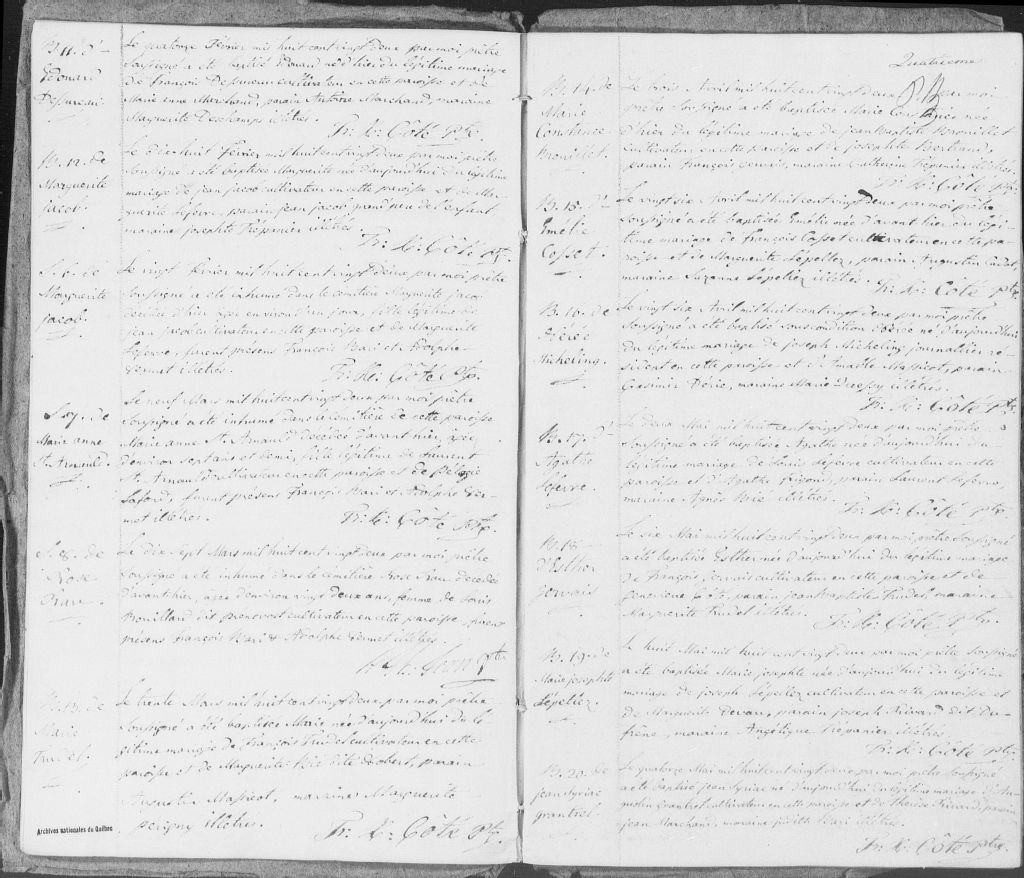 B. 11. d'
Edouard
Desureau.
Le quatorze Février mil huit cent vingt deux par moi prêtre
soussigné a été baptisé Edouard né d'hier du légitime mariage
de François Desureau cultivateur en cette paroisse et de
Marie anne Marchand, parain Antoine Marchand, maraine
Marguerite Deschamps illétrés.
Fr: X: Côté Ptre.
B. 12. de
Marguerite
jacob.
Le dix huit Février mil huit cent vingt deux par moi prêtre
soussigné a été baptisée Marguerite née d'aujourd'hui du légitime
mariage de jean jacob cultivateur en cette paroisse et de Mar-
guerite Lefevre, parain jean jacob grand père de l'enfant
maraine josephte Trépanier illétrés.
Fr: X: Côté Ptre.
S. 6. de
Marguerite
jacob.
Le vingt Février mil huit cent vingt deux par moi prêtre
soussigné a été inhumé dans le cemitière Marguerite jacob
décédée d'hier âgée environ d'un jour, fille légitime de
jean jacob cultivateur en cette paroisse et de Marguerite
Lefevre, furent présens François Bari et Adolphe
Germet illétrés.
Fr: X: Côté Ptre.
S. 7. de
Marie anne
St. Arnauld.
Le neuf Mars mil huit cent vingt deux par moi prêtre
soussigné a été inhumé dans le cemitière de cette paroisse
Marie anne St. Arnauld décédée d'avant hier, âgée
d'environ sept ans et demi, fille légitime de Laurent
St. Arnauld cultivateur en cette paroisse et de Pélagie
Lafond, furent présens François Bari et Adolphe Ger-
met illétrés.
Fr: X: Côté Ptre.
S. 8. de
Rose
Frau.
Le dix sept Mars mil huit cent vingt deux par moi prêtre
soussigné a été inhumé dans le cemitière Rose Frau décédée
d'avant hier, âgée d'environ vingt deux ans, femme de Louis
Rouillard dit prenovost cultivateur en cette paroisse, furent
présens François Bari & Adolphe Germet illétrés.
Ptre
B. 13. de
Marie
Trudel.
Le trente Mars mil huit cent vingt deux par moi prêtre
soussigné a été baptisée Marie née d'aujourd'hui du lé-
gitime mariage de François Trudel cultivateur en cette
paroisse et de Marguerite Brié dite Lobert, parain
Augustin Massicot, maraine Marguerite
perigny illétrés.
Fr: X: Côté Ptre
Archives nationales du Québec
Quatrième
B. 14. de
Marie
Constance
Brouillet.
Le trois Avril mil huit cent vingt deux par moi
prêtre soussigné a été baptisée Marie Constance née
d'hier du légitime mariage de jean Baptiste Brouillet
cultivateur en cette paroisse et de josephte Bertrand,
parain François gervais, maraine Catherine Trépanier illétrés.
Fr: X: Côté Ptre.
B. 15. d'
Emélie
Cosset.
Le vingt six Avril mil huit cent vingt deux par moi prêtre
soussigné a été baptisée Emélie née d'avant hier du légi-
time mariage de François Cosset cultivateur en cette pa-
roisse et de Marguerite Lépellez, parain Augustin Cadot,
maraine Suzanne Lépeliez illétrés. Fr: X: Côté Ptre.
B. 16. de
Déréé
Micheling.
Le vingt six Avril mil huit cent vingt deux par moi prêtre
soussigné a été baptisé sous condition Déréé né d'aujourd'hui
du légitime mariage de joseph Micheling journallier ré-
sident en cette paroisse et d'Amable Massicot, parain
Casimir Dérie, maraine Marie illétrés.
Fr: X: Côté Ptre.
B. 17. d'
Agathe
Lefevre.
Le deux Mai mil huit cent vingt deux par moi prêtre
soussigné a été baptisée Agathe née d'aujourd'hui du
légitime mariage de Louis Lefevre cultivateur en cette
paroisse et d'Agathe Frigons, parain Laurent Lefevre,
maraine Agnès Brié illétrés.
Fr: X: Côté Ptre.
B. 18.
d'Esther
gervais.
Le six Mai mil huit cent vingt deux par moi prêtre soussigné
a été baptisée Esther née d'aujourd'hui du légitime mariage
de François gervais cultivateur en cette paroisse et de
genevieve Côté, parain jean Baptiste Trudel, maraine
Marguerite Trudel illétrés.
Fr: X: Côté Ptre.
B. 19. de
Marie josephte
Lépeliez.
Le huit Mai mil huit cent vingt deux par moi prêtre soussigné
a été baptisée Marie josephte née d'aujourd'hui du légitime
mariage de joseph Lépeliez cultivateur en cette paroisse et
de Marguerite Devau, parain joseph Rivard dit Du-
frêne, maraine Angélique Trépanier illétrés.
Fr: X: Côté Ptre.
B. 20. de
jean Syriac
grantrel.
Le quatorze Mai mil huit cent vingt deux par moi prêtre soussigné
a été baptisé jean Syriac né d'aujourd'hui du légitime mariage d'An-
grantrel cultivateur en cette paroisse et de Thérèse Rivard, parain
jean Marchand, maraine judith Bari illétrés.
Fr: X: Côté Ptre.